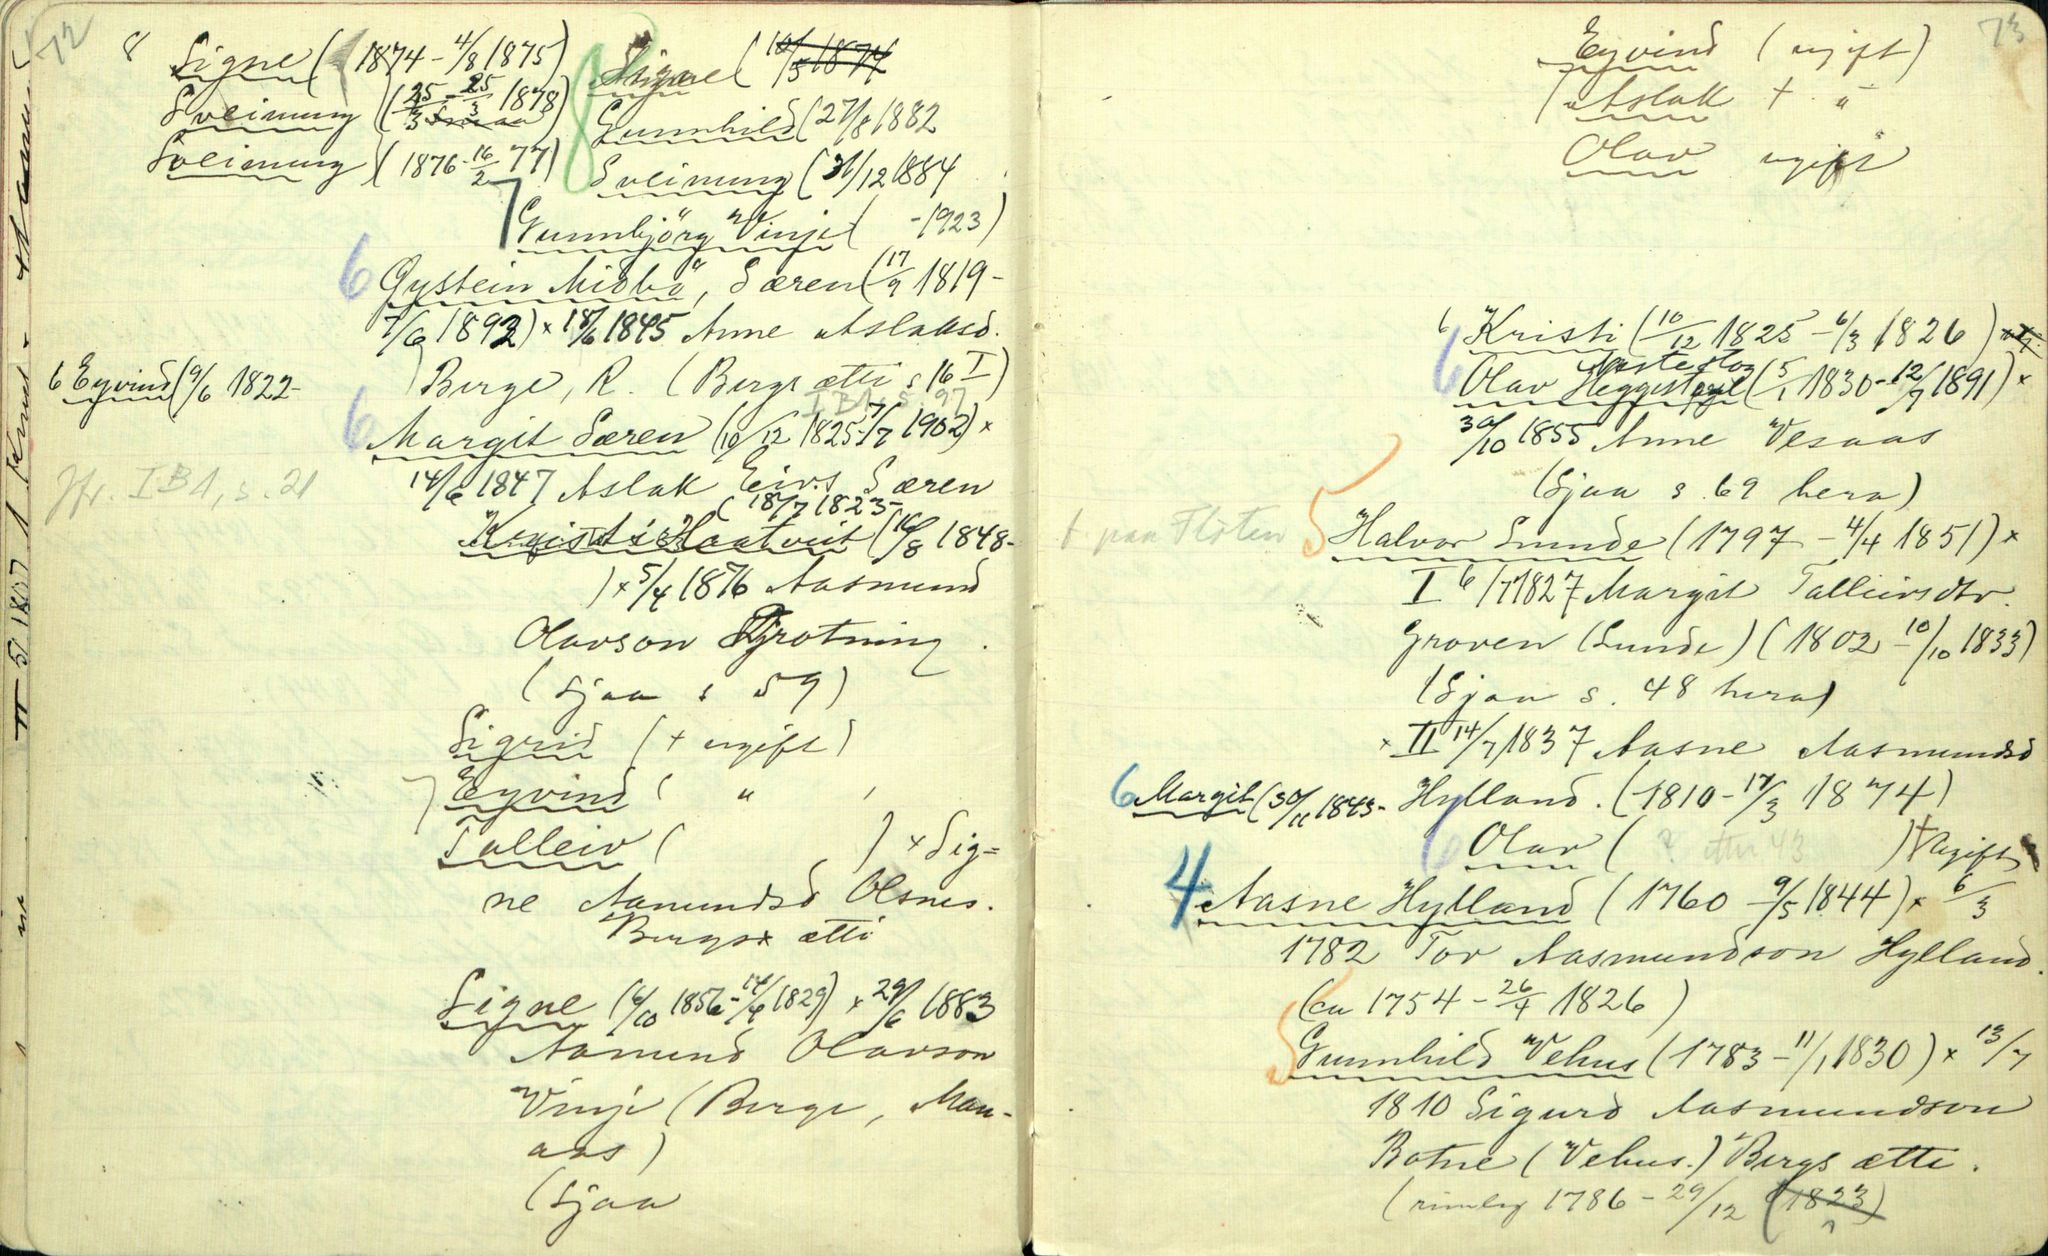 72
8 Signe ( 1874 - 4/8 1875)
Sveinung (25/3 - 25/3 1878)
Sveinung (1876 - 16/2 77)
8 Signe (10/5 1874
Gunnhild (27/8 1882
Sveinung (31/12 1884
7 Gunnbjörg Vinje ( - 1923)
6 Øystein Midbö, Særen (17/9 1819 -
7/6 1892) × 18/6 1845 Anne Aslaksd.
Berge, R. (Bergs ætti s 16 I)
I B1, s. 97
6 Eyvind (9/6 1822 -
6 Margit Særen (10/12 1825 - 7/7 1902) ×
14/6 1847 Aslak Eivs. Særen
(18/7 1823 -
Jfr. I B1, s. 21
Kristi Haatveit (16/8 1848 -
) × 5/4 1876 Aasmund
Olavson Grotning.
(sjaa s 59)
Sigrid († ugift)
7 Eyvind ( " ,
Talleiv ( ) × Sig=
ne Aamundsd Olsnes.
Bergs ætti
Signe (6/10 1856 - 14/6 1829) × 29/6 1883
Aamund Olavson
Vinje (Berge, Man-
aas)
(sjaa
73
Eyvind (ugift)
Aslak † "
Olav ugift
6 Kristi (10/12 1825 - 6/3 1826)
6 Olav Heggestøyl (5/1 1830 - 12/7 1891) ×
30/10 1855 Anne Vesaas
(Sjaa s. 69 hera)
† paa Flóten
5 Halvor Lunde (1797 - 4/4 1851) ×
I 6/7 1827 Margit Talleivsdtr.
Groven (Lunde) (1802 - 10/10 1833)
(Sjaa s. 48 hera)
× II 14/7 1837 Aasne Aasmundsd
Hylland. (1810 - 17/3 1874)
6 Margit (30/11 1843 -
6 Olav ( ? etter 43 ) † Ugift
4 Aasne Hylland (1760 - 9/5 1844) × 6/3
1782 Tor Aasmundson Hylland.
(ca 1754 - 26/4 1826)
5 Gunnhild Vehus (1783 - 11/1 1830) × 13/7
1810 Sigurd Aasmundson
Botne (Vehus.) Bergs ætti.
(rimleg 1786 - 29/12 (1823)